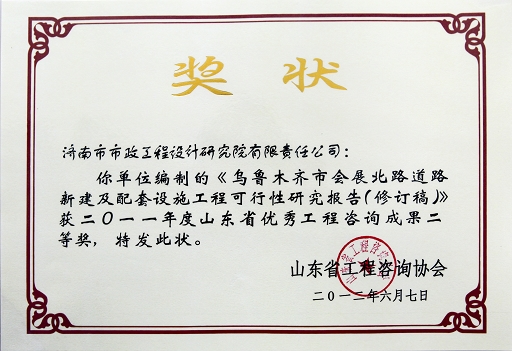 奖 状
济南市市政工程设计研究院有限责任公司：
你单位编制的《乌鲁木齐市会展北路道路
新建及配套设施工程可行性研究报告(修订稿)》
获二０一一年度山东省优秀工程咨询成果二
等奖，特发此状。
山东省工程咨询协会
二０一二年六月七日